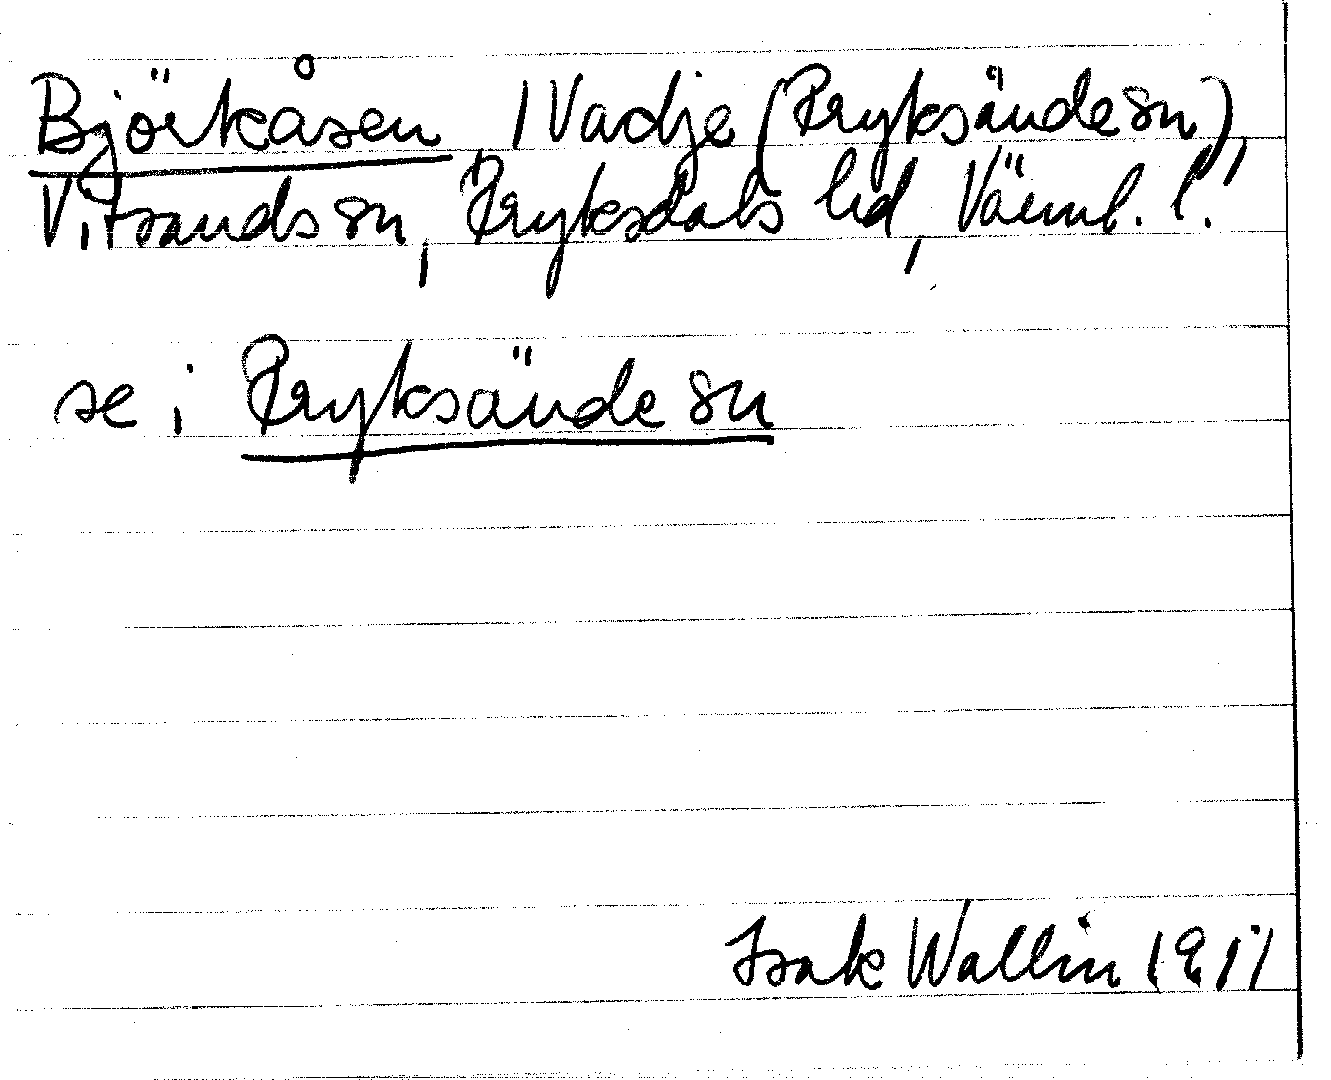 Björkåsen /Vadje (Fryksände sn),
Vitsands sn, Fryksdals hd, Värml. l.
se i Fryksände sn
Isak Wallin 1911